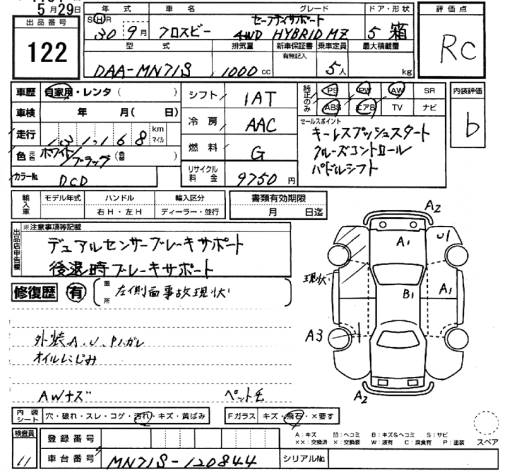 5月29日
出品番号
122
年式
グレード
ドア・形状
評価点
S H R
30年9月
クロスビー
セーフティサポート
4WD HYBRID MZ
5 箱
RC
型式
排気量
新車保証書
有無記入
乗車定員
最大積載量
DAA-MN71S
1000cc
5人
kg
車歴
自家用・レンタ( )
シフト
1AT
純正のみ
PS
PW
AW
SR
ABS
エアB
TV
ナビ
内装評価
b
車検
年 月( 日)
冷房
AAC
セールスポイント
キーレスプッシュスタート
クルーズコントロール
パドルシフト
走行
km
マイル
燃料
G
色
元色
ホワイト/
ブラック
リサイクル料金
9750円
カラーNo.
DCD
輸入車
モデル年式
ハンドル
輸入区分
右H・左H
ディーラー・並行
書類有効期限
月 日迄
出品店申告欄
※注意事項等記載
デュアルセンサーブレーキサポート
後退時ブレーキサポート
修復歴
有
箇所
左側面事故現状
外装A.U.P.ハガレ
オイルにじみ
AWキズ
ペット毛
A2
A1
U1
現状
B1
A1
A3
A2
内装シート
穴・破れ・スレ・コゲ・汚れ・キズ・黄ばみ
Fガラス
キズ・飛石・×要す
A:キズ
U:ヘコミ
B:キズ&ヘコミ
S:サビ
××:交換済
×:交換要
W:波有
C:腐食有
P:塗装
スペア
検査員
11
登録番号
車台番号
MN71S-120844
シリアルNo.